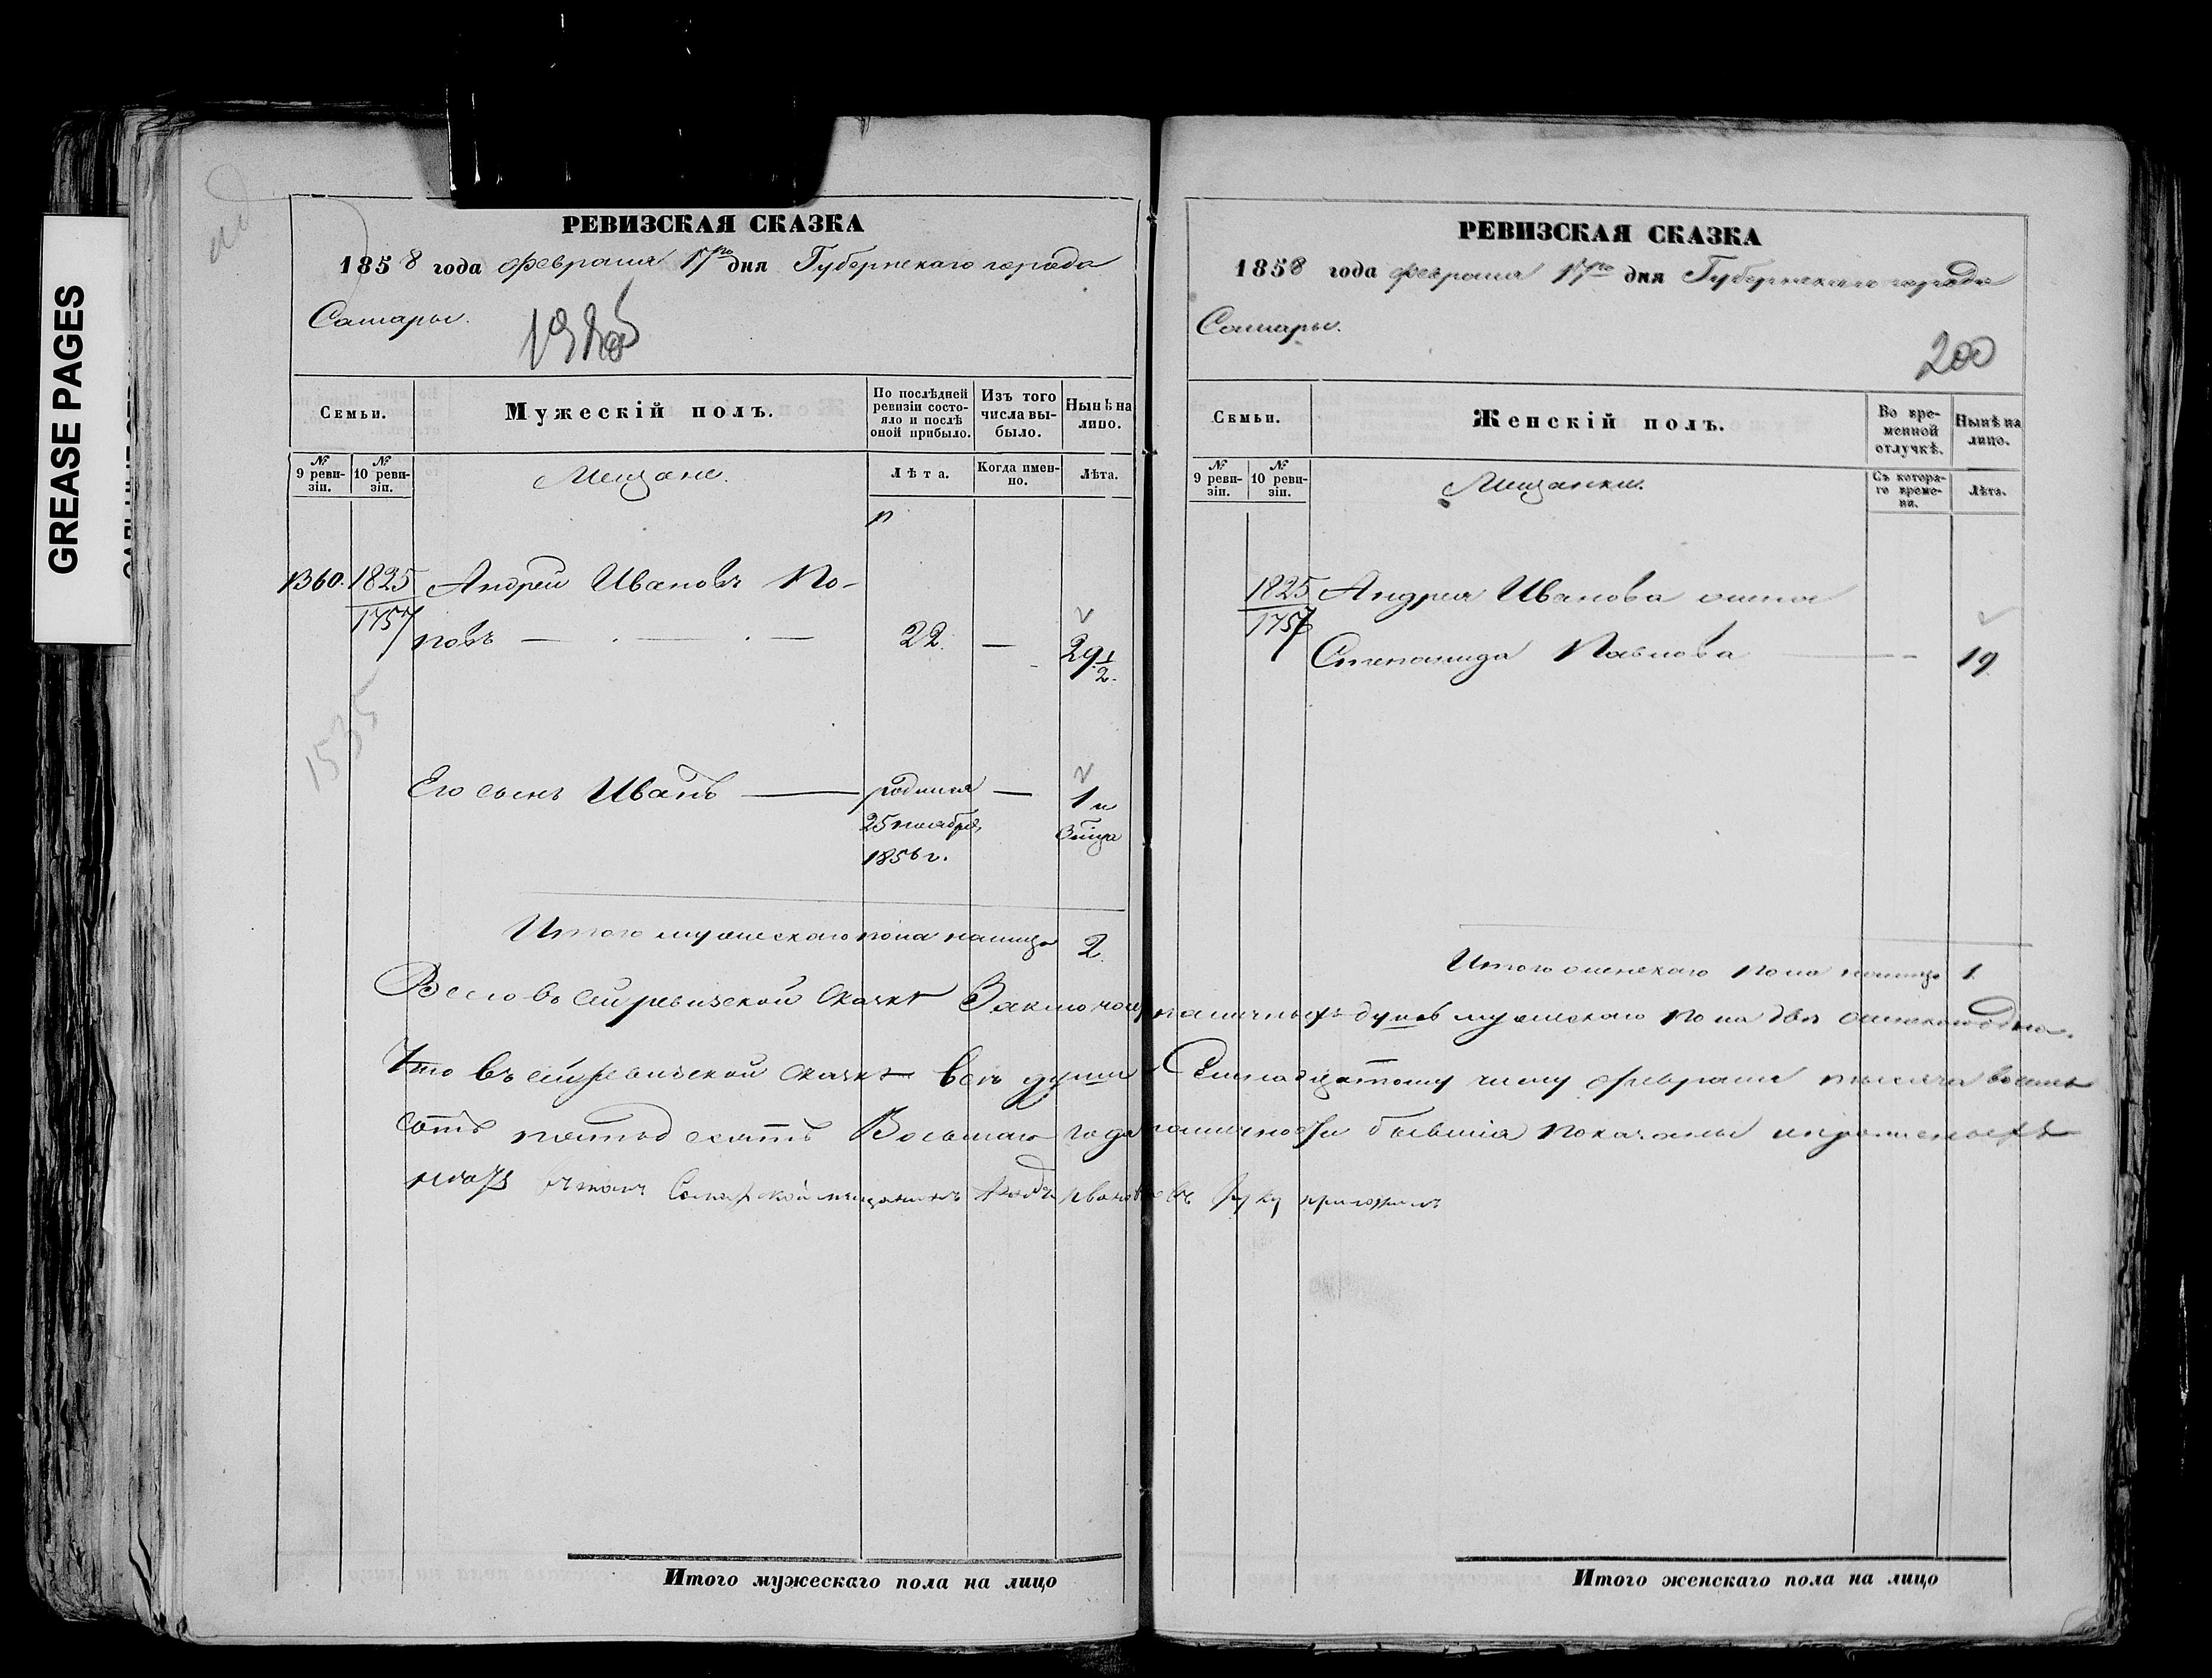 GREASE PAGES
РЕВИЗСКАЯ СКАЗКА
1858 года февраля 17го дня Губернскаго города
Самары.
Семьи.
Мужескій полъ.
По послѣдней ревизіи состояло и послѣ оной прибыло.
Изъ того числа выбыло.
Нынѣ на лицо.
№ 9 ревизіи.
№ 10 ревизіи.
Мещане.
Лѣта.
Когда именно.
Лѣта.
1360. 1825 Андрей Ивановъ По-
1757 повъ — . — . — 22. — 29 1/2.
1535
Его сынъ Иванъ — родился — 1 и
25 ноября 3 мѣца
1856 г.
Итого мужескаго пола налицо 2.
РЕВИЗСКАЯ СКАЗКА
1858 года февраля 17го дня Губернскаго города
Самары.
200
Семьи.
Женскій полъ.
Во временной отлучкѣ.
Нынѣ на лицо.
№ 9 ревизіи.
№ 10 ревизіи.
Мещанки.
Съ котораго времени.
Лѣта.
1825 Андрея Иванова жена
1757 Степанида Павлова — 19
Итого женскаго пола налицо 1.
Всего въ сей ревизской сказкѣ заключается наличныхъ душъ мужескаго пола двѣ женскаго одна.
Что въ сей ревизской сказкѣ всѣ души къ Семнадцатому числу февраля тысяча восемь
сотъ пятьдесятъ Восьмаго года въ наличности бывшія показаны и пропущенныхъ
нѣтъ въ томъ Самарской мещанинъ руку приложилъ
Итого мужескаго пола на лицо
Итого женскаго пола на лицо